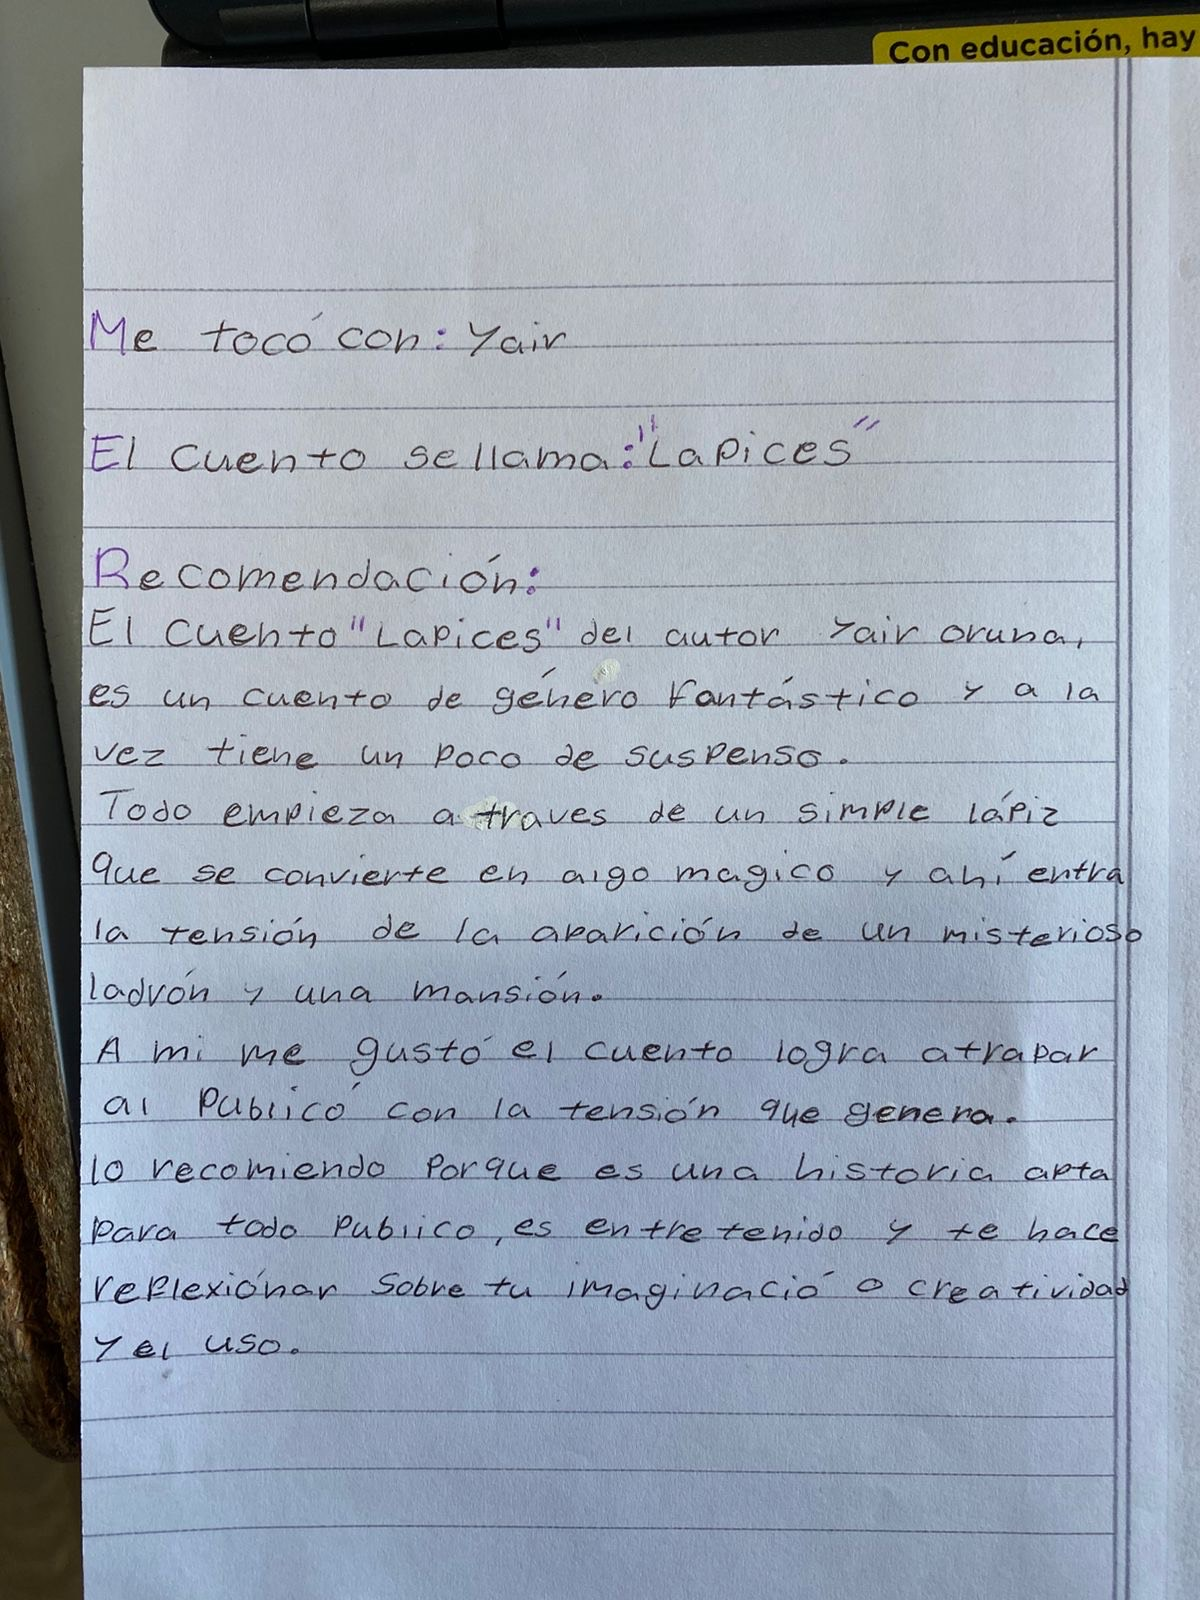 Con educación, hay
Me tocó con: Yair
El cuento se llama: "Lapices"
Recomendación:
El cuento "Lapices" del autor Yair oruna,
es un cuento de género fantástico y a la
vez tiene un poco de suspenso.
Todo empieza a traves de un simple lápiz
que se convierte en algo magico y ahí entra
la tensión de la aparición de un misterioso
ladrón y una mansión.
A mi me gustó el cuento logra atrapar
al publicó con la tensión que genera.
lo recomiendo porque es una historia apta
para todo publico, es entretenido y te hace
reflexiónar sobre tu imaginació o creatividad
y el uso.